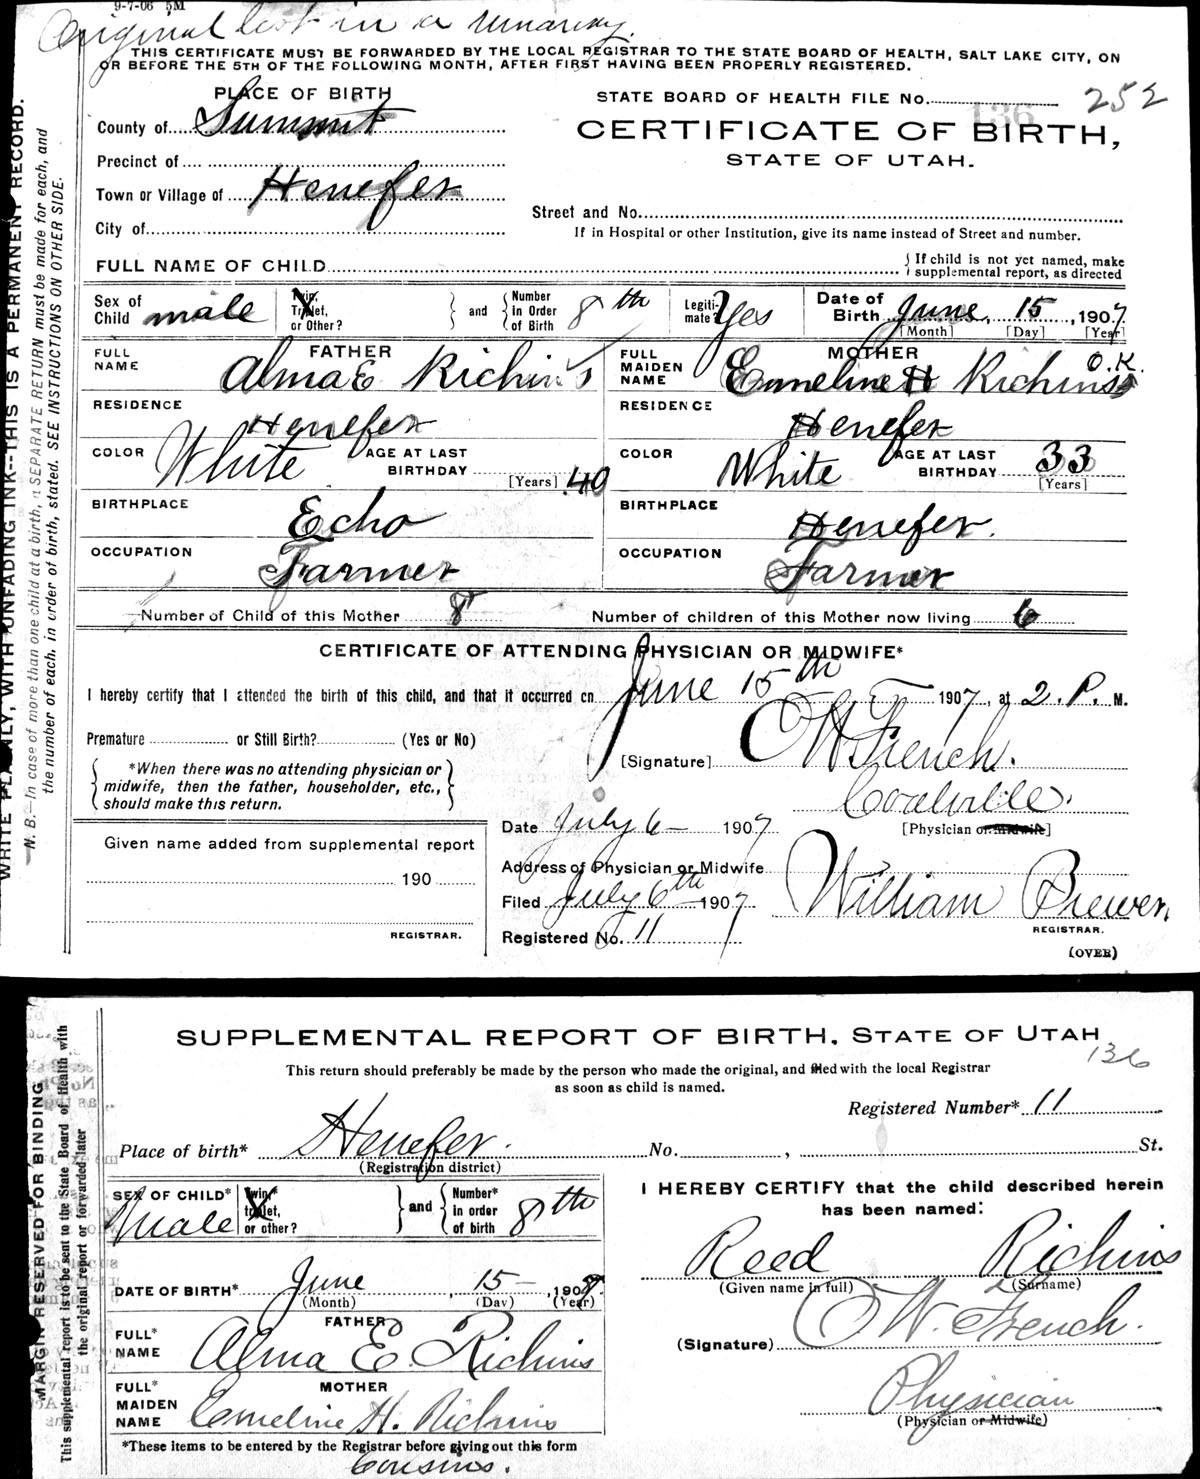 9-7-06 5M
Original lost in a runaway.
THIS CERTIFICATE MUST BE FORWARDED BY THE LOCAL REGISTRAR TO THE STATE BOARD OF HEALTH, SALT LAKE CITY, ON
OR BEFORE THE 5TH OF THE FOLLOWING MONTH, AFTER FIRST HAVING BEEN PROPERLY REGISTERED.
WRITE PLAINLY, WITH UNFADING INK--THIS IS A PERMANENT RECORD.
N. B.—In case of more than one child at a birth, a SEPARATE RETURN must be made for each, and
the number of each, in order of birth, stated. SEE INSTRUCTIONS ON OTHER SIDE.
PLACE OF BIRTH
County of Summit
Precinct of
Town or Village of Henefer
City of
STATE BOARD OF HEALTH FILE No. 252
136
CERTIFICATE OF BIRTH,
STATE OF UTAH.
Street and No.
If in Hospital or other Institution, give its name instead of Street and number.
FULL NAME OF CHILD
If child is not yet named, make
supplemental report, as directed
Sex of Child male
Twin, Triplet, or Other? X
and
Number in Order of Birth 8th
Legitimate? Yes
Date of Birth June 15, 1907
[Month] [Day] [Year]
FATHER
FULL NAME Alma E Richins
RESIDENCE Henefer
COLOR White AGE AT LAST BIRTHDAY 40 [Years]
BIRTHPLACE Echo
OCCUPATION Farmer
MOTHER
O.K.
FULL MAIDEN NAME Emmeline H Richins
RESIDENCE Henefer
COLOR White AGE AT LAST BIRTHDAY 33 [Years]
BIRTHPLACE Henefer.
OCCUPATION Farmer
Number of Child of this Mother 8 Number of children of this Mother now living 6
CERTIFICATE OF ATTENDING PHYSICIAN OR MIDWIFE*
I hereby certify that I attended the birth of this child, and that it occurred on June 15th 1907, at 2. P. M.
Premature or Still Birth? (Yes or No)
*When there was no attending physician or
midwife, then the father, householder, etc.,
should make this return.
[Signature] O W French.
Coalville.
[Physician or Midwife]
Date July 6 - 1907
Address of Physician or Midwife
Filed July 6th 1907
William Brewer,
REGISTRAR.
Registered No. 11
(OVER)
Given name added from supplemental report
190
REGISTRAR.
SUPPLEMENTAL REPORT OF BIRTH, STATE OF UTAH
136
This return should preferably be made by the person who made the original, and filed with the local Registrar
as soon as child is named.
MARGIN RESERVED FOR BINDING
This supplemental report is to be sent to the State Board of Health with
the original report or forwarded later
Registered Number* 11
Place of birth* Henefer. No. , St.
(Registration district)
SEX OF CHILD* Male
Twin,* triplet, or other? X
and
Number* in order of birth 8th
DATE OF BIRTH* June 15— 1908
(Month) (Day) (Year)
FATHER
FULL* NAME Alma E. Richins
MOTHER
FULL* MAIDEN NAME Emeline H. Richins
*These items to be entered by the Registrar before giving out this form
Cousins.
I HEREBY CERTIFY that the child described herein
has been named:
Reed Richins
(Given name in full) (Surname)
(Signature) O W. French.
Physician
(Physician or Midwife)